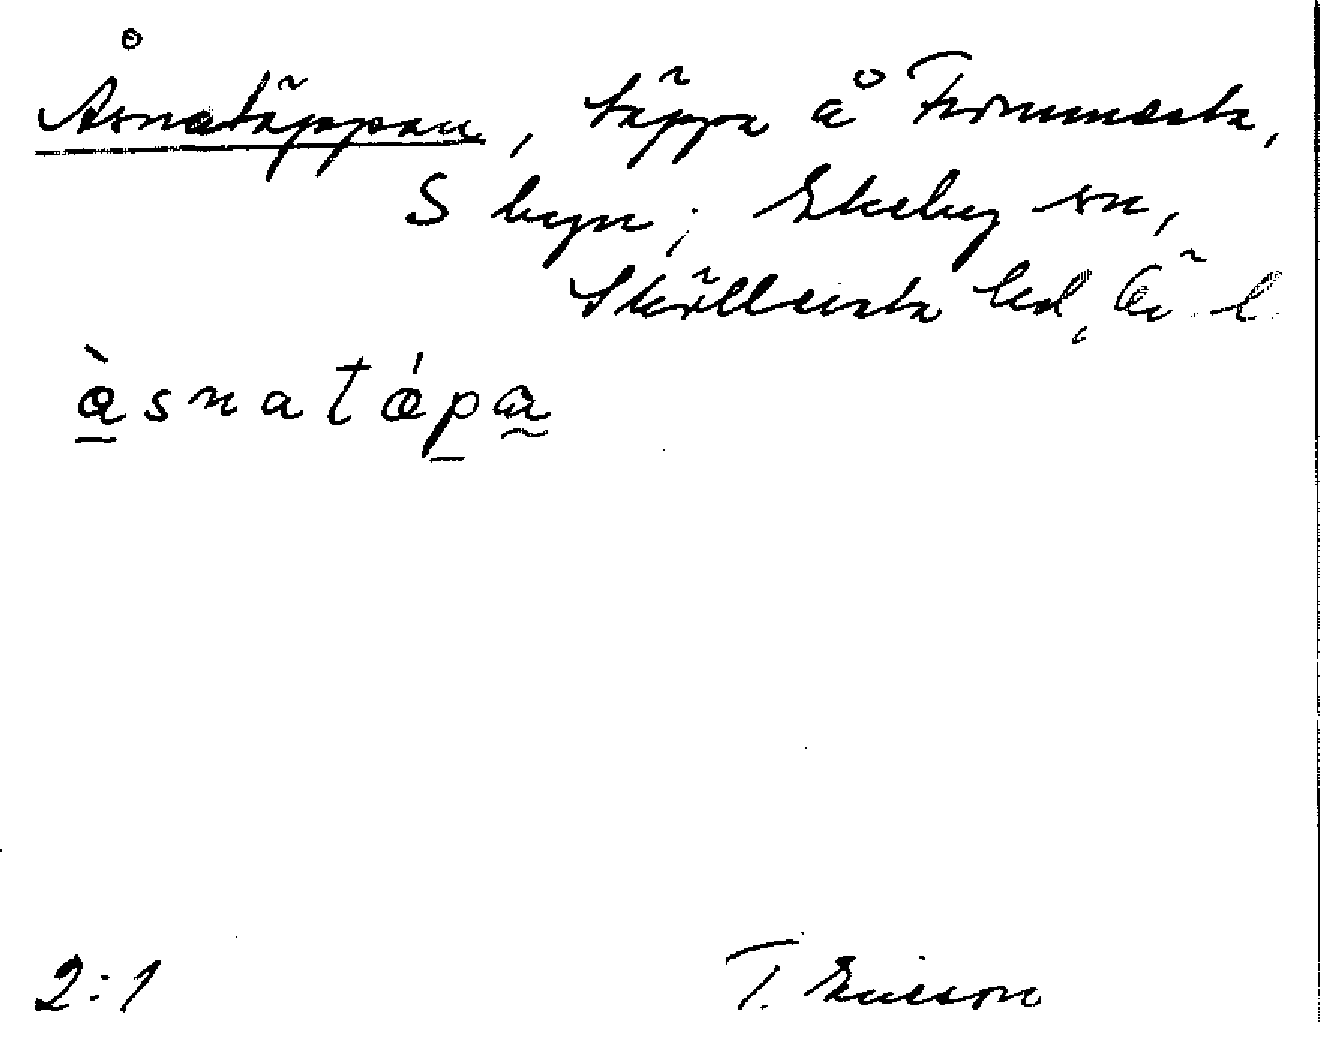 Åsnatäppan, täppa å Frommesta,
S byn; Ekeby sn,
Sköllersta hd, Ö. l.
àsnatápa
2:1
T. Ericson